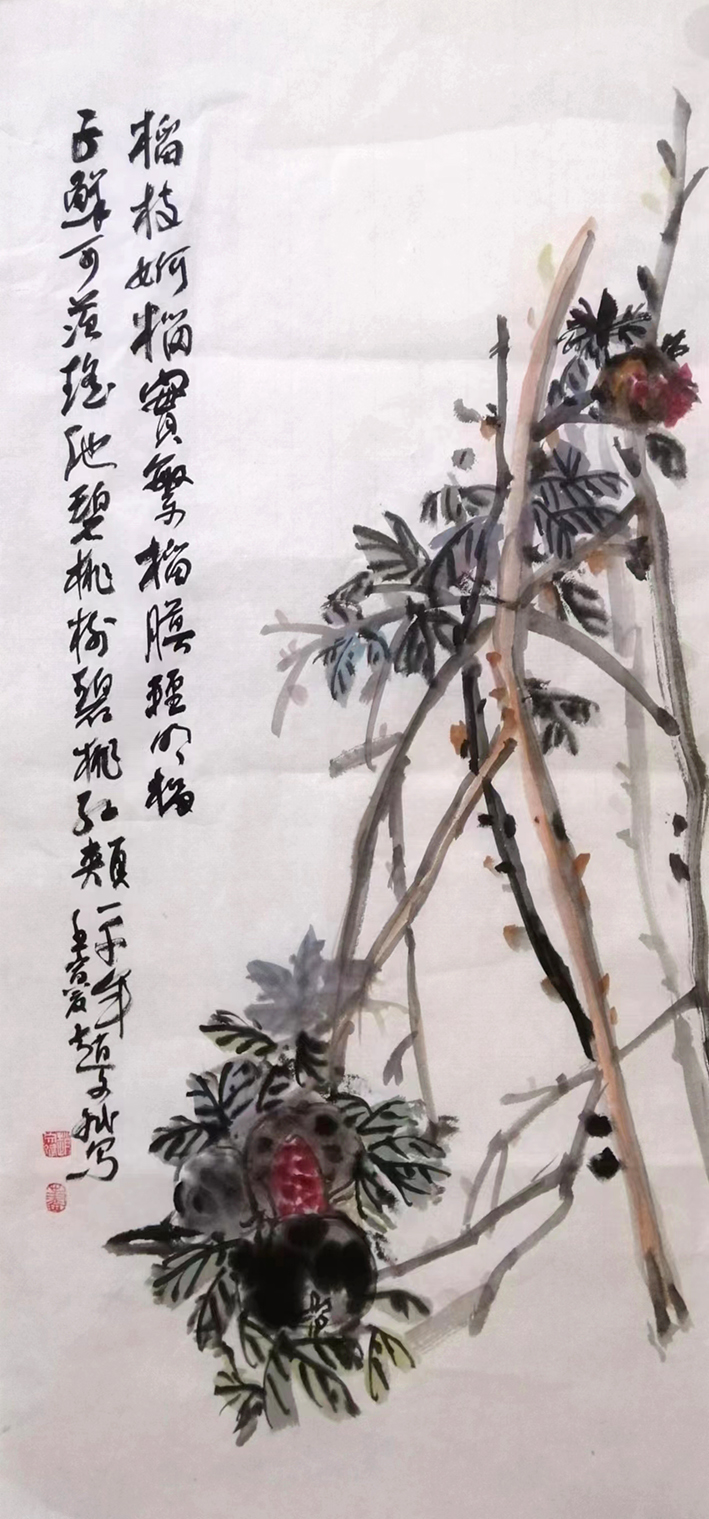 榴枝婀榴實繁榴膜輕明榴
子鮮可羨瑤池碧桃树碧桃红頰一千年
壬寅趙文寫